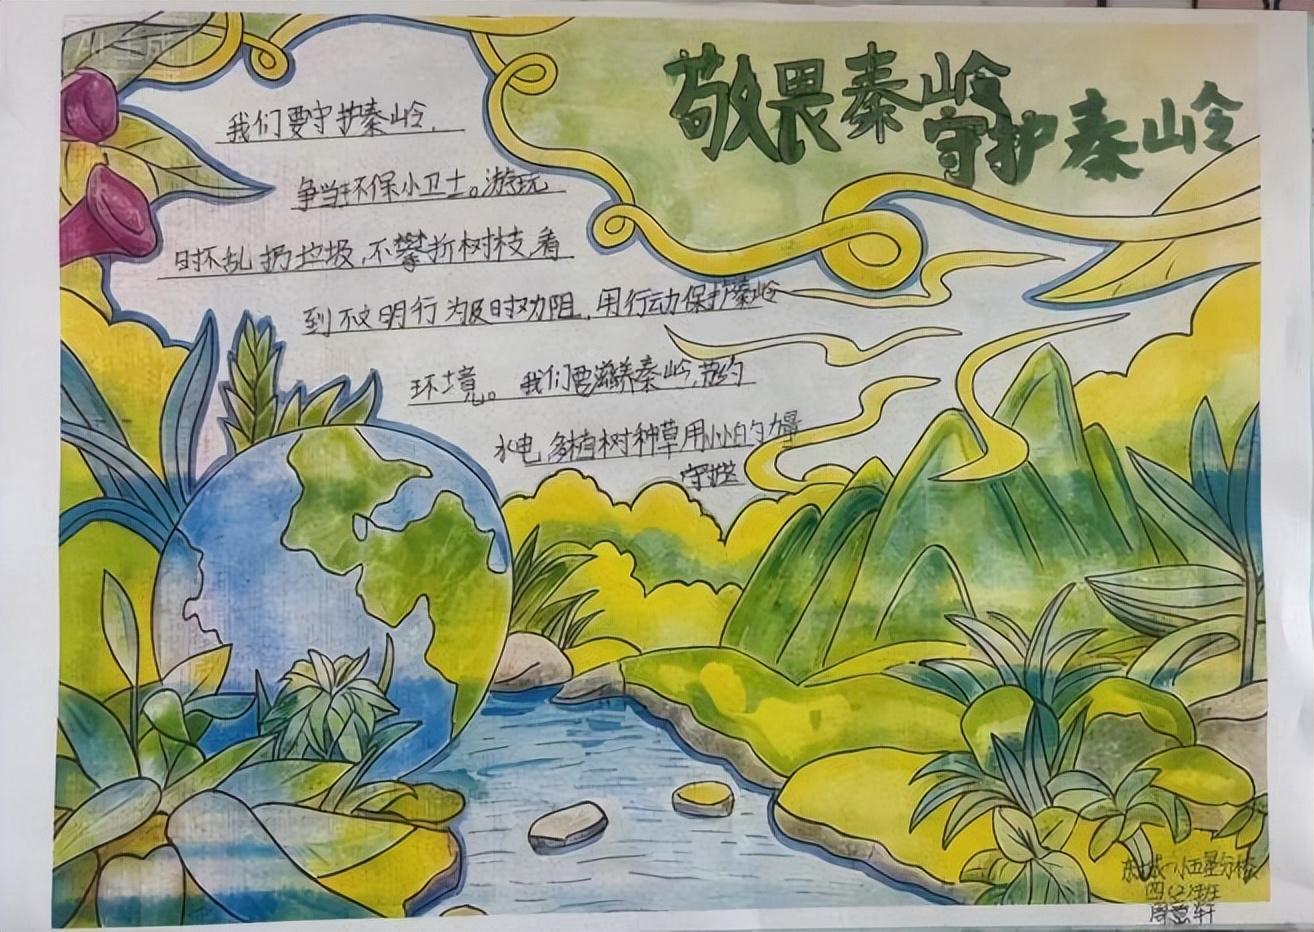 AI生成
敬畏秦岭
守护秦山岭
我们要守护秦岭，
争当环保小卫士。游玩
时不乱扔垃圾，不攀折树枝，看
到不文明行为及时劝阻，用行动保护秦岭
环境。我们要滋养秦岭，节约
水电，多植树种草用小小的力量
守护
东城一小五星分校
四（2）班
周意轩